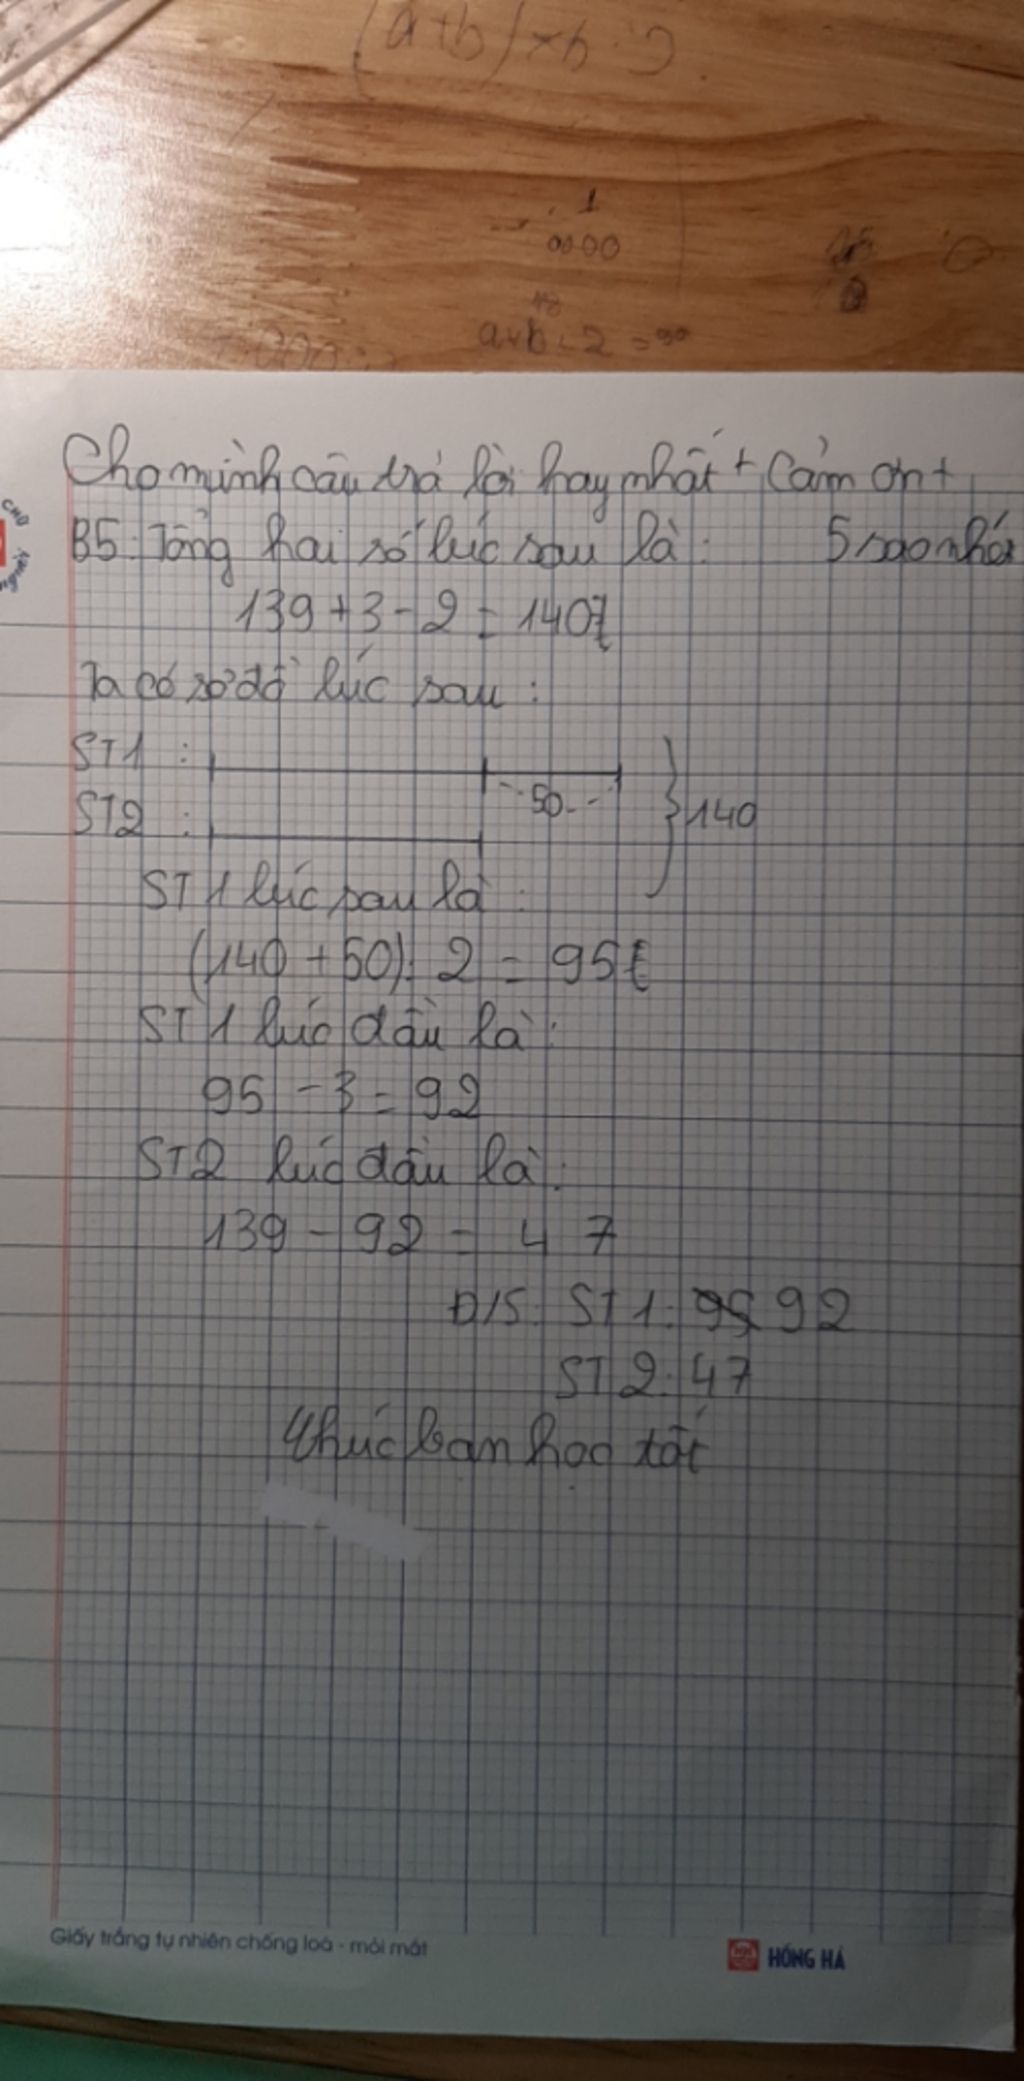 (a+b)x b:2
1
0000
a+b:2=90
Cho mình câu trả lời hay nhất + Cảm ơn +
B5: Tổng hai số lúc sau là: 5 sao nhá
139+3-2=140
Ta có sơ đồ lúc sau:
ST1:
50
ST2:
140
ST1 lúc sau là:
(140+50):2=95
ST1 lúc đầu là:
95-3=92
ST2 lúc đầu là:
139-92=47
Đ/S: ST1: 95 92
ST2: 47
Chúc bạn học tốt
Giấy trắng tự nhiên chống loá - mỏi mắt
HỒNG HÀ